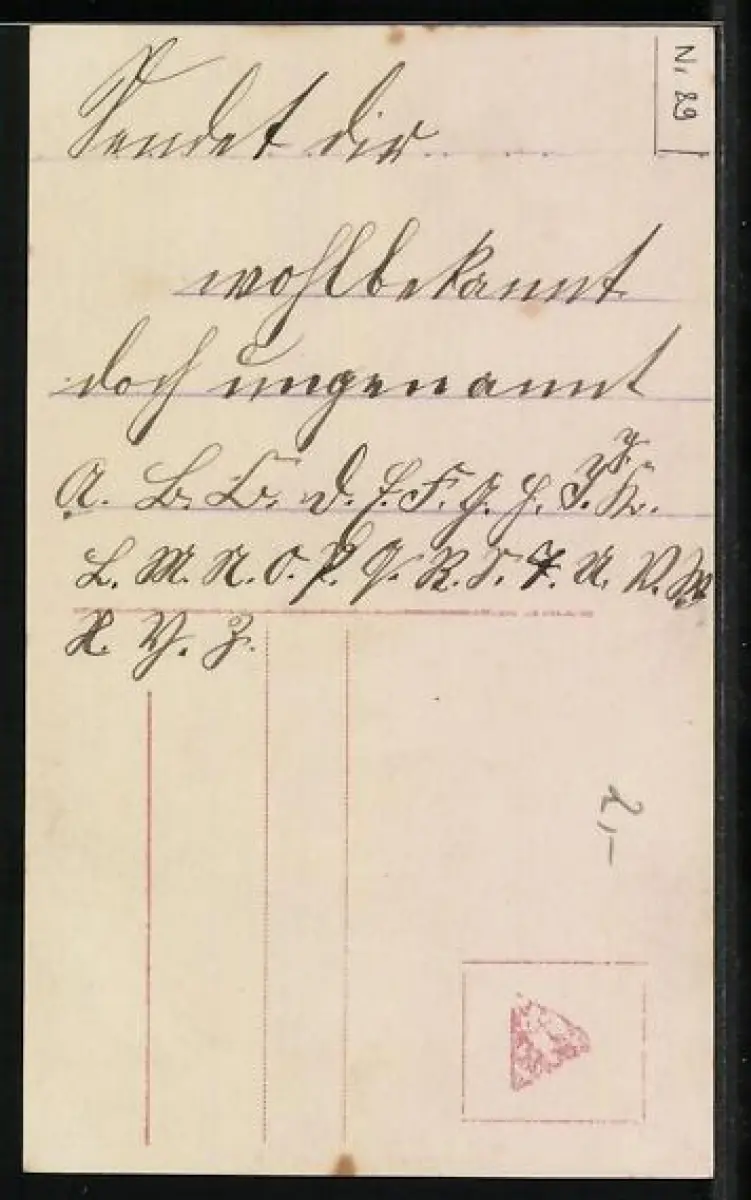 Nr 89
Sendet dir
wohlbekannt
doch ungenannt
A. B. C. D. E. F. G. H. I. K.
L. M. N. O. P. Q. R. S. T. U. V. W
X. Y. Z.
2,-